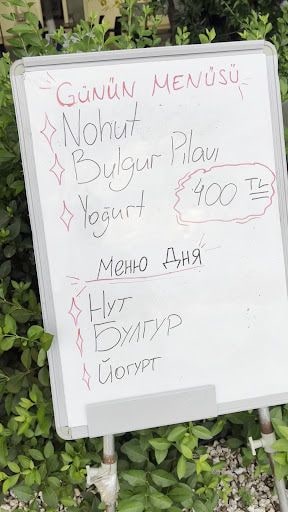 GÜNÜN MENÜSÜ
Nohut
Bulgur Pılavı
Yoğurt
400 TL
Меню Дня
Нут
Булгур
Йогурт